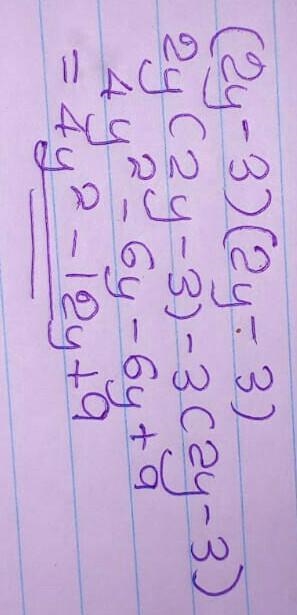 (2y-3)(2y-3)
2y(2y-3)-3(2y-3)
4y²-6y-6y+9
=4y²-12y+9